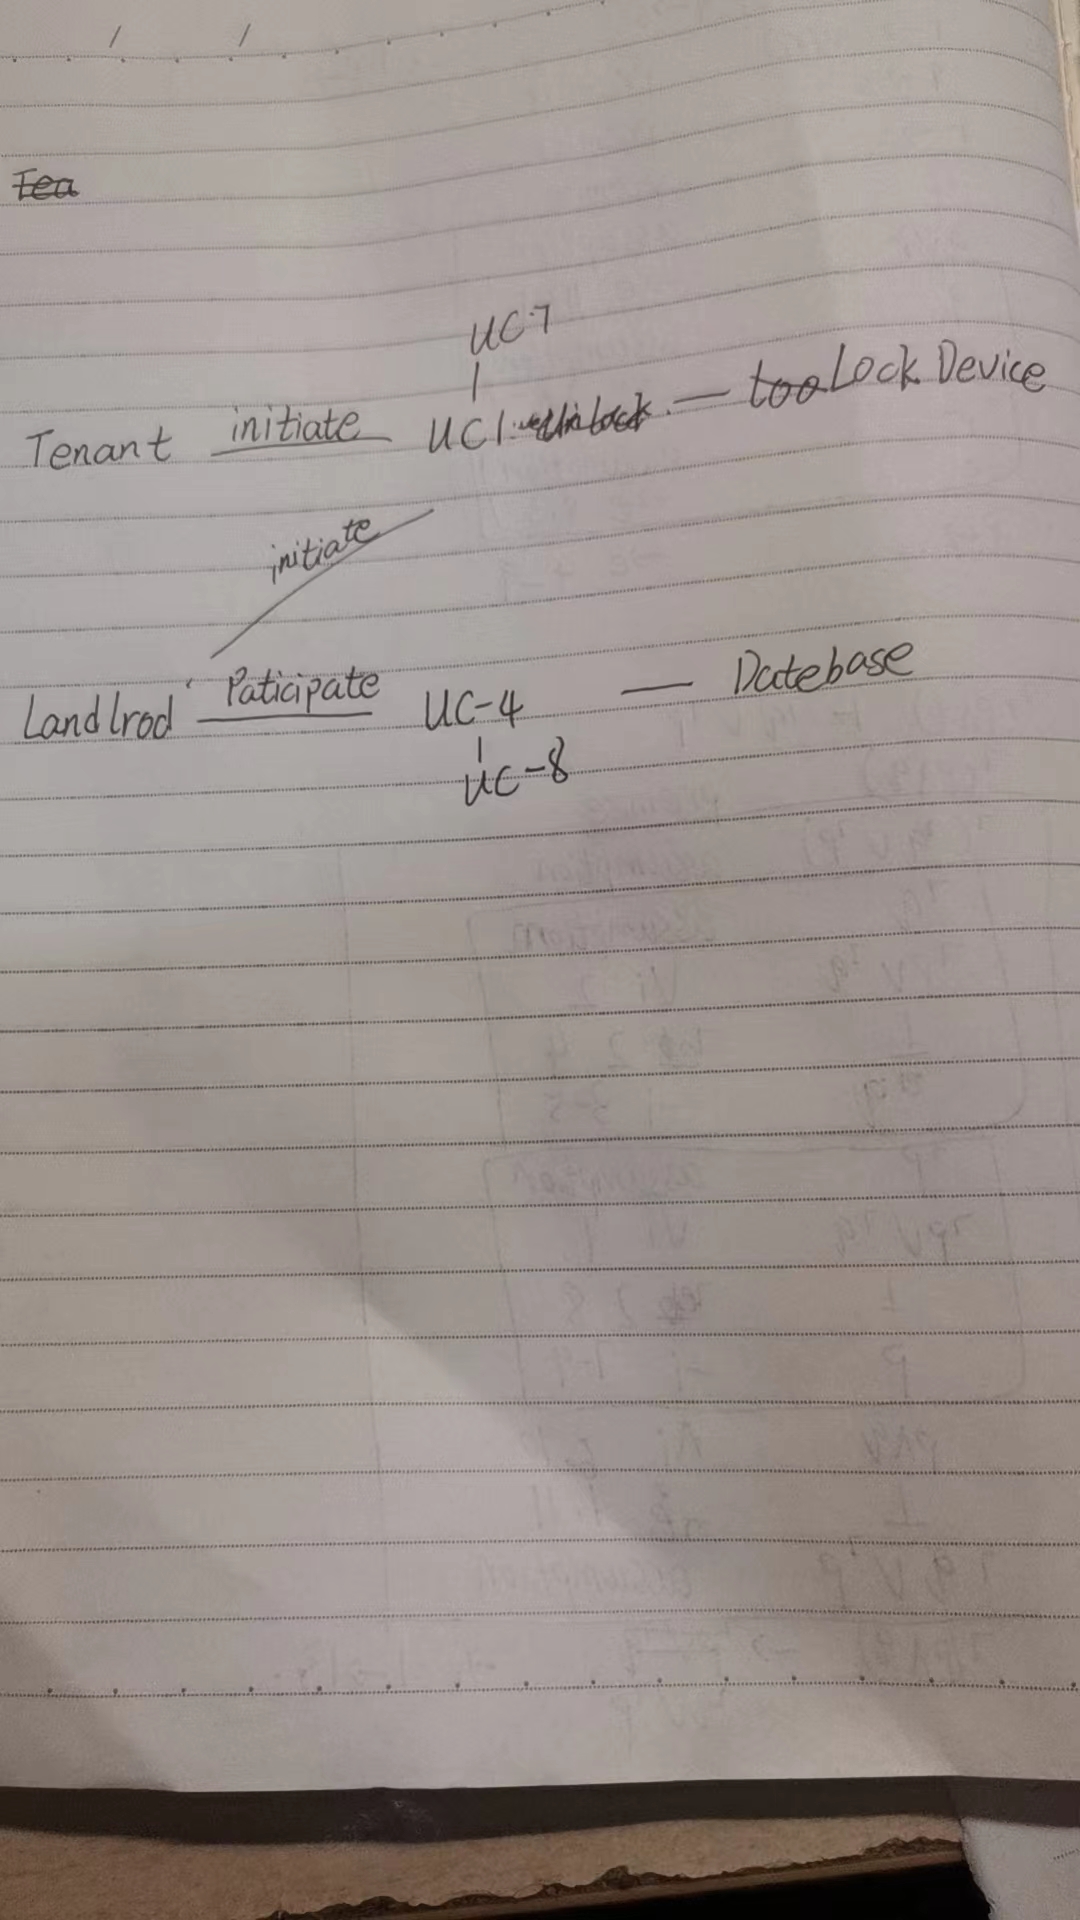 Tea
UC-7
Tenant initiate UC1: Unlock. — too Lock Device
initiate
Landlrod Paticipate UC-4 — Datebase
UC-8